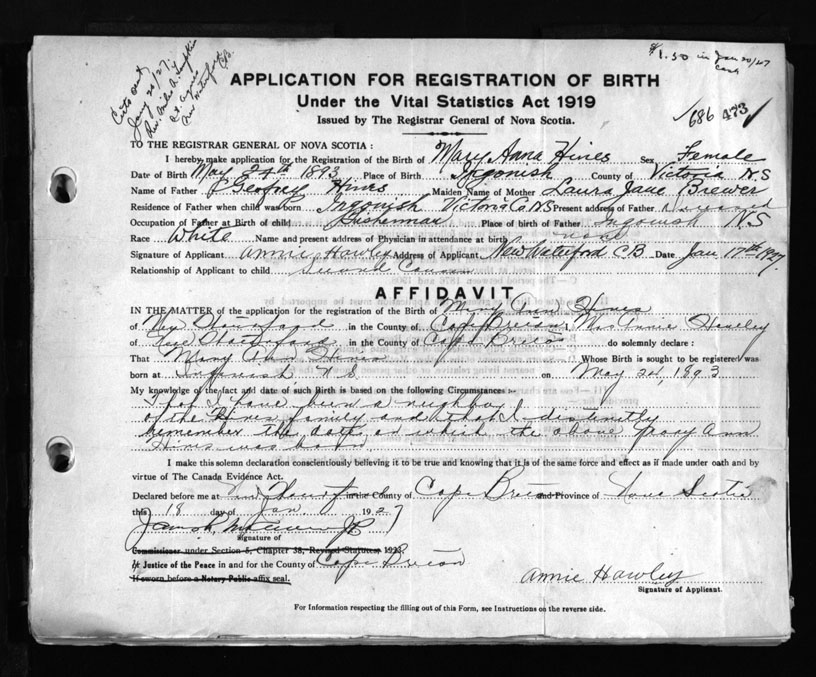 $1.50 in Jan 20/27
Cash
Certs sent
Jany 20/27.
Rev. Miles A. Tompkins
New Waterford
C.B.
APPLICATION FOR REGISTRATION OF BIRTH
Under the Vital Statistics Act 1919
Issued by The Registrar General of Nova Scotia.
686 473
TO THE REGISTRAR GENERAL OF NOVA SCOTIA :
I hereby make application for the Registration of the Birth of Mary Anna Hines Sex Female
Date of Birth May 24th 1893 Place of Birth Ingonish County of Victoria N S
Name of Father Geofrey Hines Maiden Name of Mother Laura Jane Brewer
Residence of Father when child was born Ingonish Victoria Co NS Present address of Father Deceased
Occupation of Father at Birth of child Fisherman Place of birth of Father Ingonish N S
Race White Name and present address of Physician in attendance at birth none
Signature of Applicant Annie Hawley Address of Applicant New Waterford CB Date Jan 17th 1927.
Relationship of Applicant to child Second Cousin
AFFIDAVIT
IN THE MATTER of the application for the registration of the Birth of Mary Ann Hines
of New Waterford in the County of Cape Breton I, Mrs Annie Hawley
of New Waterford in the County of Cape Breton do solemnly declare :
That Mary Ann Hines Whose Birth is sought to be registered was
born at Ingonish N S on May 24, 1893
My knowledge of the fact and date of such Birth is based on the following Circumstances :-
I have been a neighbor
of the Hines family and that I distinctly
remember the date on which the above Mary Ann
Hines was born
I make this solemn declaration conscientiously believing it to be true and knowing that it is of the same force and effect as if made under oath and by
virtue of The Canada Evidence Act.
Declared before me at New Waterford in the County of Cape Breton and Province of Nova Scotia
this 18 day of Jan 1927
J.P.
Signature of
Commissioner under Section 5, Chapter 38, Revised Statutes 1923
Justice of the Peace in and for the County of Cape Breton
If sworn before a Notary Public affix seal.
Annie Hawley
Signature of Applicant.
For Information respecting the filling out of this Form, see Instructions on the reverse side.